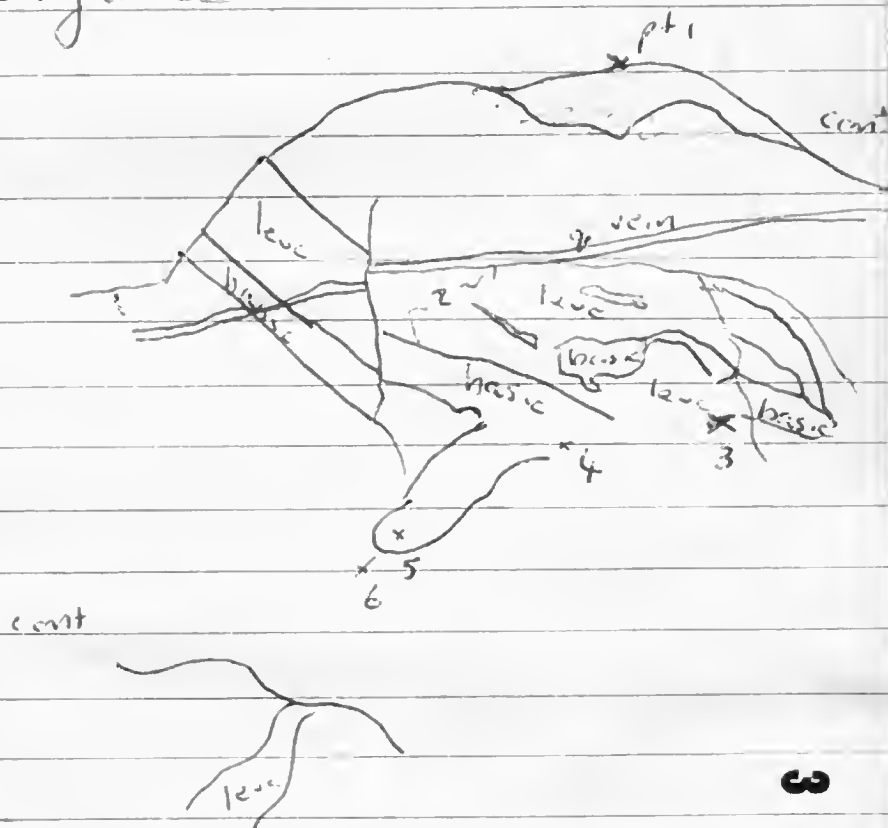 pt 1
cont
leuc
vein
basic
leuc
basic
basic
leuc
basic
3
4
5
6
cont
leuc
3